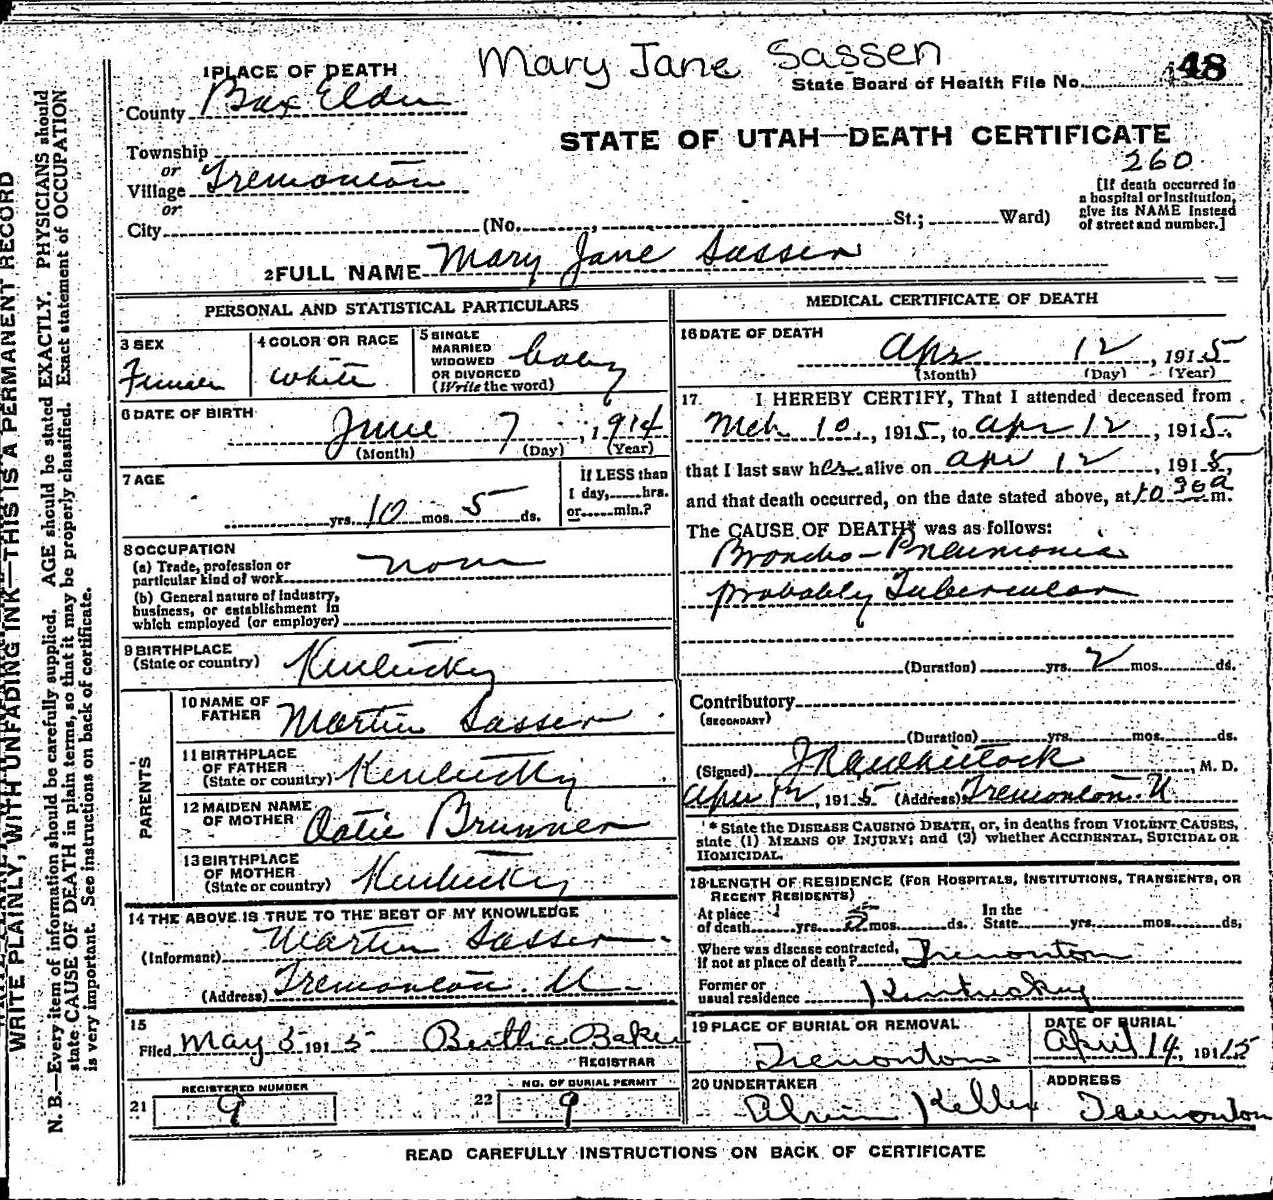 Mary Jane Sassen
48
1 PLACE OF DEATH
State Board of Health File No.
County Box Elder
STATE OF UTAH—DEATH CERTIFICATE
260
Township
or
Village Tremonton
or
City (No. , St.; Ward)
[If death occurred in
a hospital or institution,
give its NAME instead
of street and number.]
2 FULL NAME Mary Jane Sassen
PERSONAL AND STATISTICAL PARTICULARS
3 SEX
Female
4 COLOR OR RACE
white
5 SINGLE
MARRIED
WIDOWED
OR DIVORCED
(Write the word)
baby
6 DATE OF BIRTH
June 7, 1914
(Month) (Day) (Year)
7 AGE
yrs. 10 mos. 5 ds.
If LESS than
1 day, hrs.
or min.?
8 OCCUPATION
(a) Trade, profession or
particular kind of work
none
(b) General nature of industry,
business, or establishment in
which employed (or employer)
9 BIRTHPLACE
(State or country) Kentucky
PARENTS
10 NAME OF
FATHER Martin Sassen
11 BIRTHPLACE
OF FATHER
(State or country) Kentucky
12 MAIDEN NAME
OF MOTHER Brunner
13 BIRTHPLACE
OF MOTHER
(State or country) Kentucky
14 THE ABOVE IS TRUE TO THE BEST OF MY KNOWLEDGE
(Informant) Martin Sassen
(Address) Tremonton U.
15
Filed May 5 1915 Bertha Baker
REGISTRAR
REGISTERED NUMBER
21 9
NO. OF BURIAL PERMIT
22 9
MEDICAL CERTIFICATE OF DEATH
16 DATE OF DEATH
Apr 12, 1915
(Month) (Day) (Year)
17. I HEREBY CERTIFY, That I attended deceased from
Mch 10, 1915, to Apr 12, 1915,
that I last saw her alive on Apr 12, 1915,
and that death occurred, on the date stated above, at 10 30a m.
The CAUSE OF DEATH* was as follows:
Broncho-Pneumonia
probably Tubercular
(Duration) yrs. 2 mos. ds.
Contributory
(SECONDARY)
(Duration) yrs. mos. ds.
(Signed) , M. D.
Apr 12, 1915 (Address) Tremonton U.
* State the DISEASE CAUSING DEATH, or, in deaths from VIOLENT CAUSES,
state (1) MEANS OF INJURY; and (2) whether ACCIDENTAL, SUICIDAL OR
HOMICIDAL.
18 LENGTH OF RESIDENCE (FOR HOSPITALS, INSTITUTIONS, TRANSIENTS, OR
RECENT RESIDENTS)
At place
of death yrs. mos. ds.
In the
State yrs. mos. ds.
Where was disease contracted,
If not at place of death? Tremonton
Former or
usual residence Kentucky
19 PLACE OF BURIAL OR REMOVAL
Tremonton
DATE OF BURIAL
April 14, 1915
20 UNDERTAKER
Keller
ADDRESS
Tremonton
READ CAREFULLY INSTRUCTIONS ON BACK OF CERTIFICATE
WRITE PLAINLY, WITH UNFADING INK—THIS IS A PERMANENT RECORD
N. B.—Every item of information should be carefully supplied. AGE should be stated EXACTLY. PHYSICIANS should
state CAUSE OF DEATH in plain terms, so that it may be properly classified. Exact statement of OCCUPATION
is very important. See instructions on back of certificate.